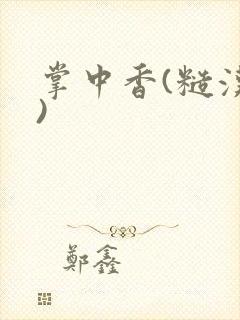 掌中香(糙
)
鄭鑫